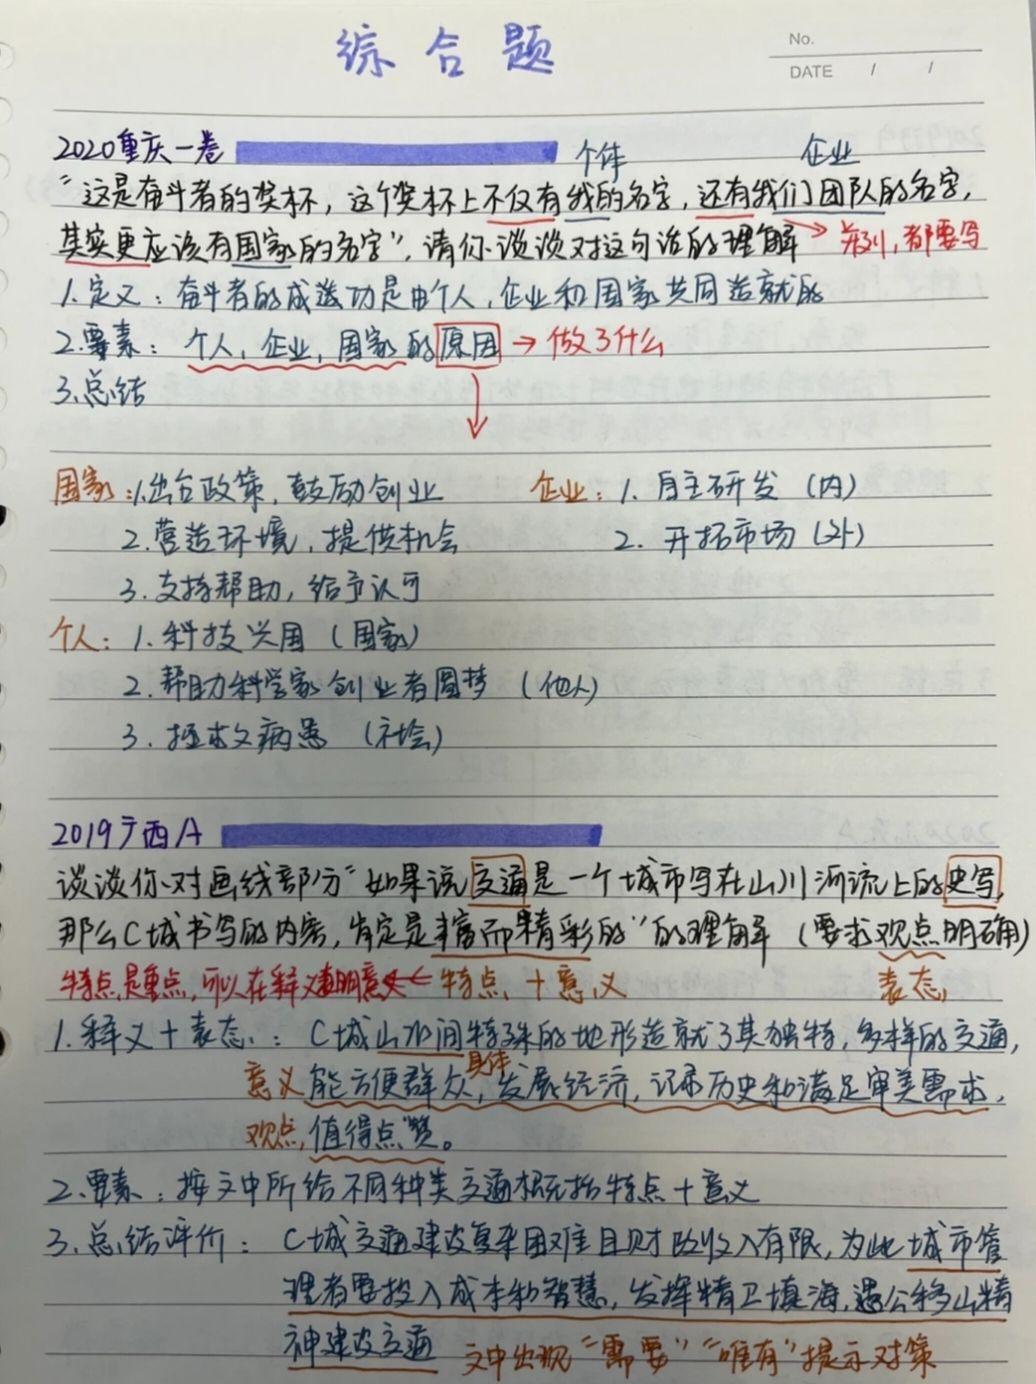 综合题
No.
DATE / /
2020重庆一卷
个体 企业
"这是奋斗者的奖杯，这个奖杯上不仅有我的名字，还有我们团队的名字，
其实更应该有国家的名字"，请你谈谈对这句话的理解 → 并列，都要写
1.定义：奋斗者的成造功是由个人，企业和国家共同造就的
2.要素：个人，企业，国家的原因→做了什么
3.总结
国家：1.出台政策，鼓励创业 企业：1.自主研发（内）
2.营造环境，提供机会 2.开拓市场（外）
3.支持帮助，给予认可
个人：1.科技兴国（国家）
2.帮助科学家创业者圆梦（他人）
3.拯救病患（社会）
2019广西A
谈谈你对画线部分"如果说交通是一个城市写在山川河流上的史写，
那么C城书写的内容，肯定是丰富而精彩的"的理解（要求观点明确）
特点是重点，可以在释义表明意义←特点+意义 表态
1.释义+表态：C城山水间特殊的地形造就了其独特，多样的交通，
具体
意义 能方便群众，发展经济，记录历史和满足审美需求，
观点，值得点赞。
2.要素：按文中所给不同种类交通概括特点+意义
3.总结评价：C城交通建设复杂困难且财政收入有限，为此城市管
理者要投入成本和智慧，发挥精卫填海，愚公移山精
神建设交通 文中出现"需要""唯有"提示对策